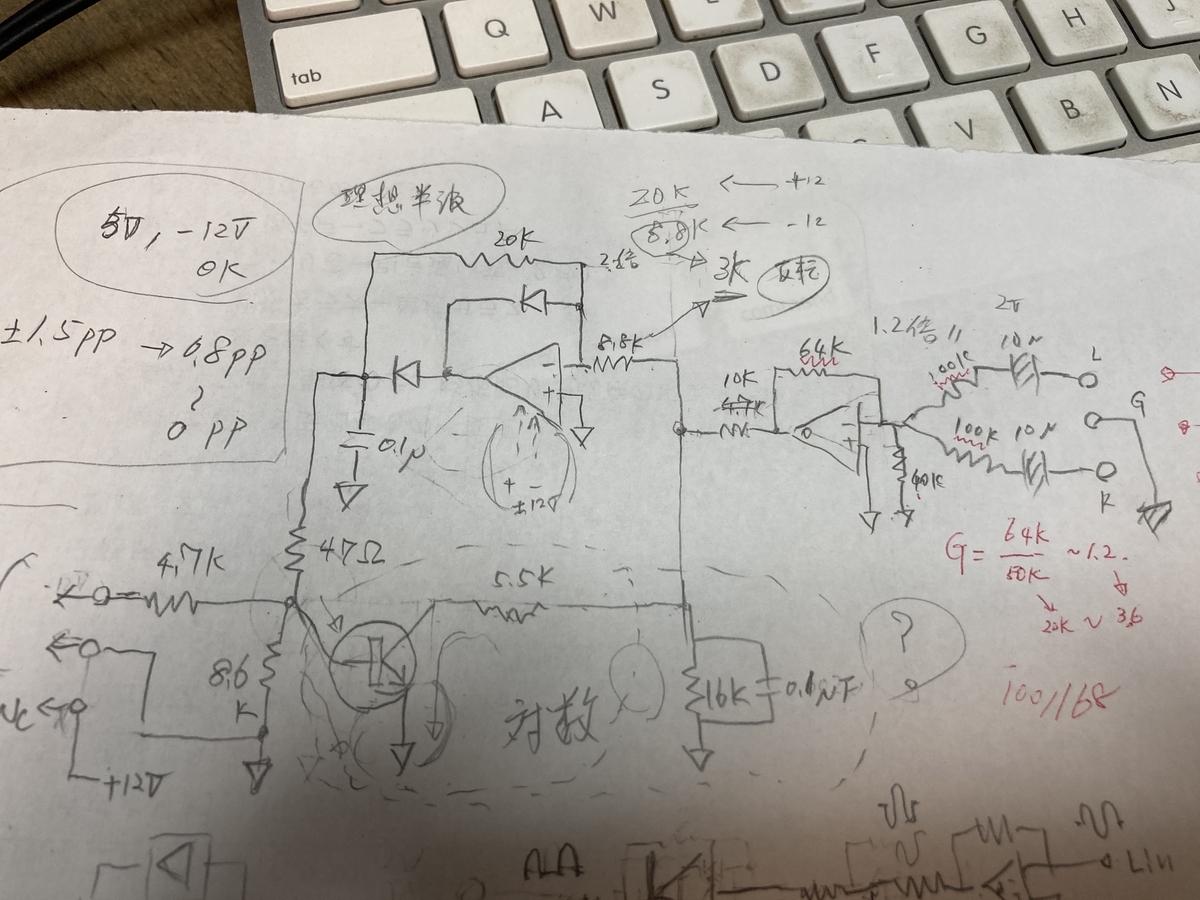 Q
W
tab
A
S
D
F
G
H
J
V
B
N
5V, -12V
OK
±1.5pp → 0.8pp
~
0 pp
理想半波
20K ← +12
8.8K ← -12
3K 反転
20K
2倍
8.8K
0.1μ
+ -
±12V
1.2倍
64K
10K
4.7K
100K
10μ
L
G
100K
10μ
R
40K
G = 64K / 50K ~1.2.
20K ~ 3.6
100//68
4.7K
47Ω
5.5K
8.6
K
対数
16K
0.1μF
?
NC
+12V
Lin